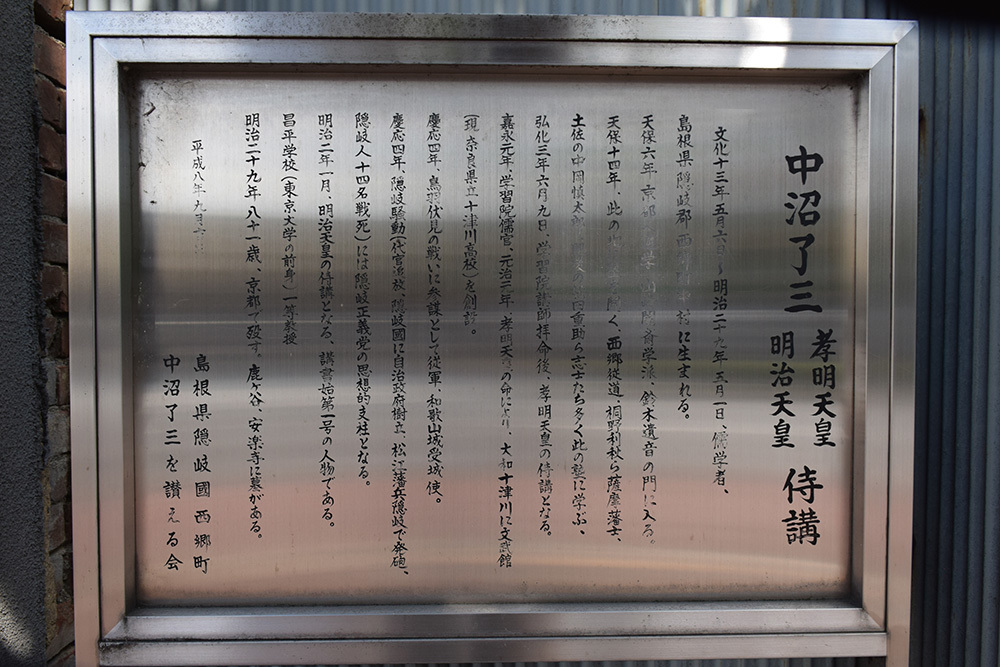 中沼了三 孝明天皇 明治天皇 侍講
文化十三年五月 日〜明治二十九年五月一日、儒学者、
島根県隠岐郡西 村に生まれる。
天保六年、京都 学 斎学派、鈴木遺音の門に入る。
天保十四年、此の く、西郷従道、桐野利秋ら薩摩藩士、
土佐の中岡慎太郎 重助ら志士たち多く此の塾に学ぶ、
弘化三年六月九日、学習院講師拝命後、孝明天皇の侍講となる。
嘉永元年、学習院儒官、元治元年、孝明天皇の命により、大和十津川に文武館
(現 奈良県立十津川高校)を創設。
慶応四年、鳥羽伏見の戦いに参謀として従軍、和歌山城受城使。
慶応四年、隠岐騒動(代官追放、隠岐國に自治政府樹立、松江藩兵隠岐で発砲、
隠岐人十四名戦死)には隠岐正義党の思想的支柱となる。
明治二年一月、明治天皇の侍講となる、講書始第一号の人物である。
昌平学校(東京大学の前身)一等教授
明治二十九年八十一歳、京都で歿す。鹿ヶ谷、安楽寺に墓がある。
平成八年九月
島根県隠岐國西郷町
中沼了三を讃える会